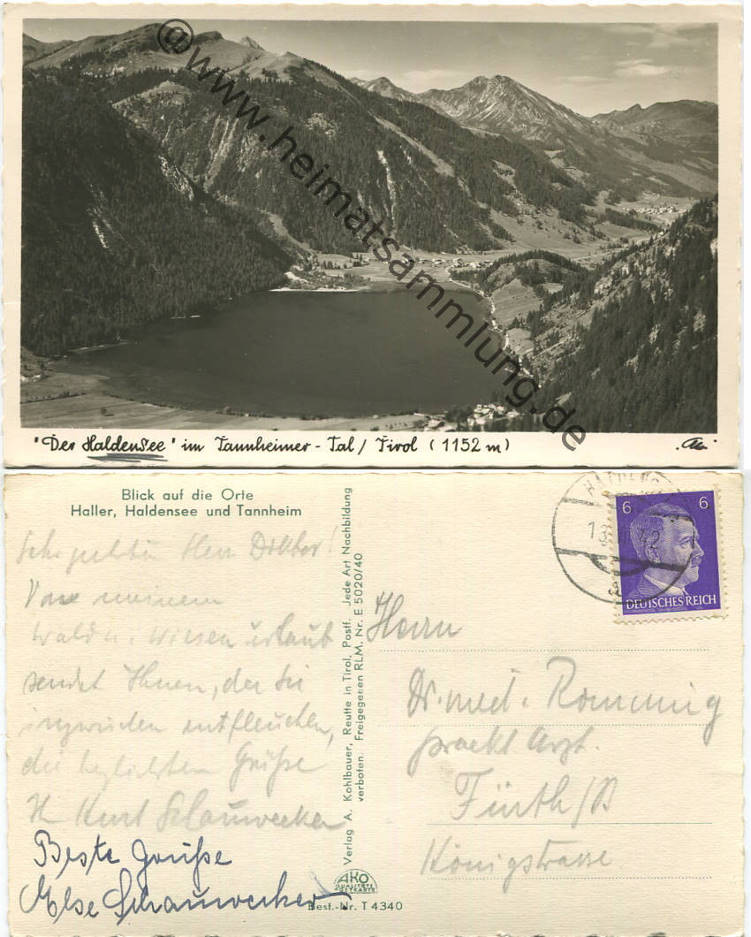 @www.heimatsammlung.de
"Der Haldensee" im Tannheimer-Tal / Tirol (1152 m)
Blick auf die Orte
Haller, Haldensee und Tannheim
Sehr geehrter Herr Doktor!
Von meinem
Wald u. Wiesen urlaub
sendet Ihnen, der Sie
inzwischen entfleuchten,
die herzlichsten Grüße
Kurt Schauwecker
Beste Grüße
Else Schauwecker
Verlag A. Kohlbauer, Reutte in Tirol, Postf. Jede Art Nachbildung
verboten. Freigegeben RLM. Nr. E 5020/40
AKO
Best.-Nr. T 4340
6 6
DEUTSCHES REICH
Herrn
Dr. med. Rommig
prakt Arzt.
Fürth/B
Königstrasse